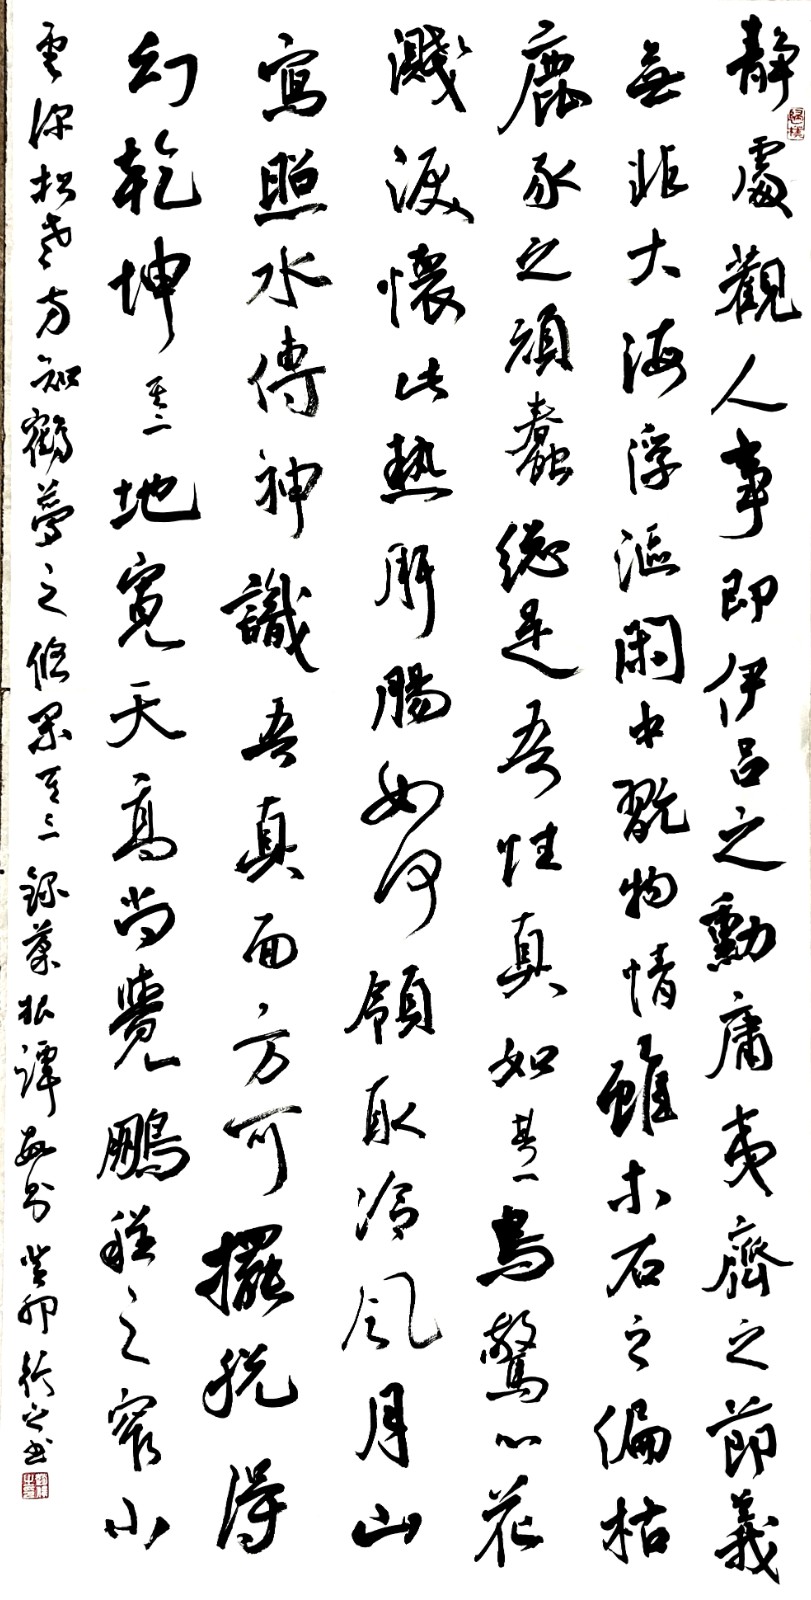 靜處觀人事即伊呂之勳庸夷齊之節義
無非大海浮漚閑中翫物情雖木石之偏枯
鹿豕之頑蠢總是吾性真如其一鳥驚心花
濺淚懷此熱肝腸如何領取冷風月山
寫照水傳神識吾真面方可擺脫得
幻乾坤其二地寬天高尚覺鵬程之窄小
雲深松老方知鶴夢之悠閑其三錄菜根譚 癸卯 書